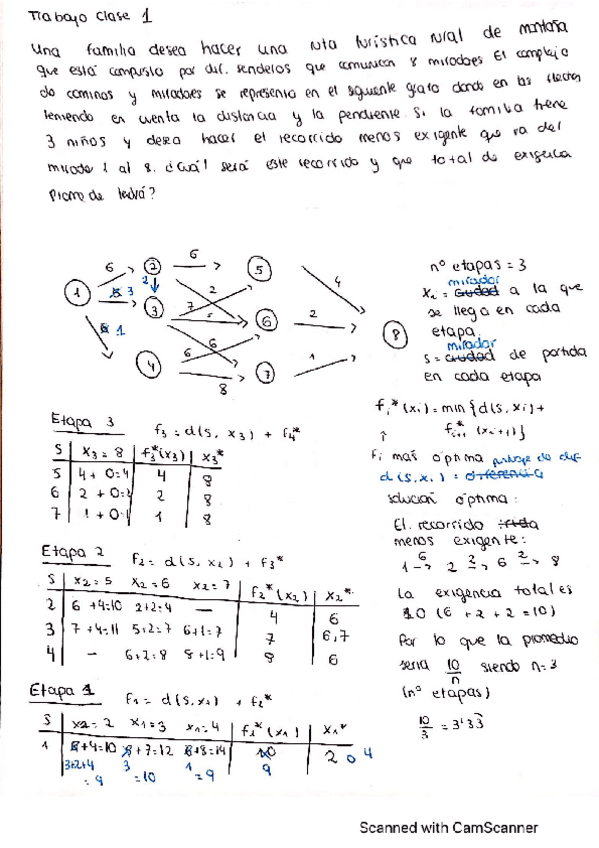 Trabajo Clase 1
Una familia desea hacer una ruta turística rural de montaña
que está compuesto por dif. senderos que comunican 8 miradores El complejo
de caminos y miradores se representa en el siguiente grafo donde en las flechas
teniendo en cuenta la distancia y la pendiente. Si la familia tiene
3 niños y desea hacer el recorrido menos exigente que va del
mirador 1 al 8. ¿Cuál será este recorrido y que total de exigencia
tendrá?
6 2 6 5
1 3 2 3 2 7 6 4 2 8
1 4 6 6 8 7 1
nº etapas = 3
mirador
xi = ciudad a la que
se llega en cada
etapa.
mirador
s = ciudad de partida
en cada etapa
fi*(xi) = min {d(s, xi) +
f*i+1 (xi+1)}
fi mas óptima
d(s, xi) =
solución óptima:
El recorrido
menos exigente:
1 6→ 2 2→ 6 2→ 8
La exigencia total es
10 (6 + 2 + 2 = 10)
Por lo que la promedio
sería 10/n siendo n=3
(nº etapas)
10/3 = 3'33
Etapa 3 f3 = d(s, x3) + f4*
S x3 = 8 f3*(x3) x3*
5 4 + 0=4 4 8
6 2 + 0=2 2 8
7 1 + 0=1 1 8
Etapa 2 f2 = d(s, x2) + f3*
S x2=5 x2=6 x2=7 f2*(x2) x2*
2 6+4=10 2+2=4 — 4 6
3 7+4=11 5+2=7 6+1=7 7 6,7
4 – 6+2=8 8+1=9 8 6
Etapa 1 f1 = d(s, x1) + f2*
S x1=2 x1=3 x1=4 f1*(x1) x1*
1 6+4=10 +7=12 6+8=14 10 2 o 4
3+2+4 3 1 9
=9 =10 =9
Scanned with CamScanner